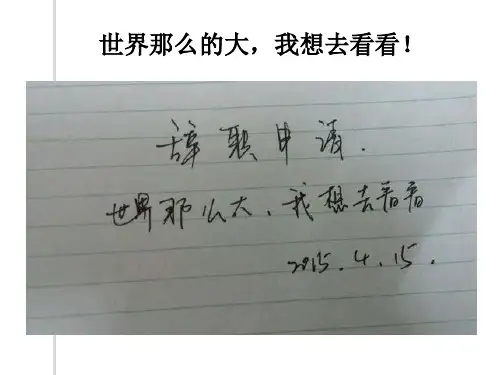 世界那么的大，我想去看看！
辞职申请.
世界那么大,我想去看看
2015.4.15.